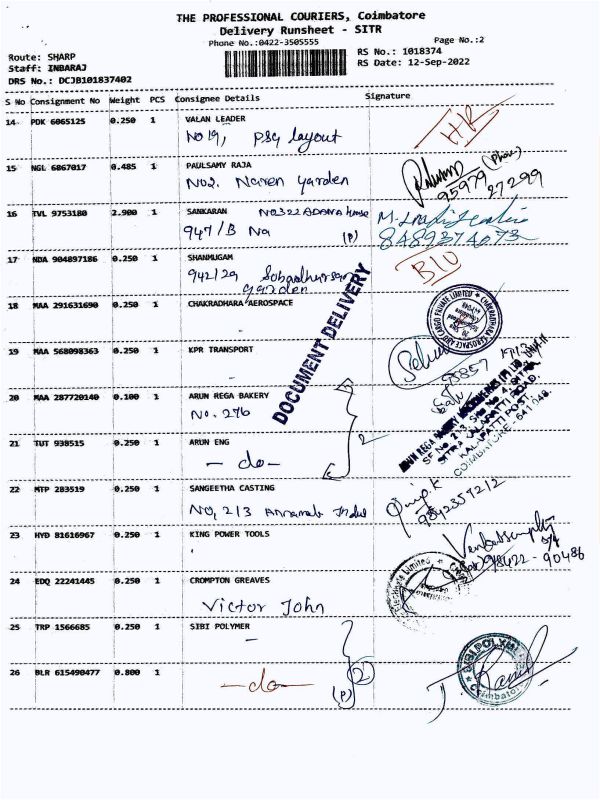 THE PROFESSIONAL COURIERS, Coimbatore
Delivery Runsheet - SITR
Phone No.:0422-3505555
Page No.:2
Route: SHARP
RS No.: 1018374
Staff: INBARAJ
RS Date: 12-Sep-2022
DRS No.: DCJB101837402
S No Consignment No Weight PCS Consignee Details Signature
14 PDK 6065125 0.250 1 VALAN LEADER
No 19, PSG layout
HR
15 NGL 6867017 0.485 1 PAULSAMY RAJA
No2. Naren garden
(Phone)
95979 27299
16 TVL 9753180 2.900 1 SANKARAN NO322 ADANA house
947/B Na (P)
8489274073
17 NDA 904897186 0.250 1 SHANMUGAM
942/29
garden
18 MAA 291631690 0.250 1 CHAKRADHARA AEROSPACE
-
CHAKRADHARA AEROSPACE AND CARGO PRIVATE LIMITED
DOCUMENT DELIVERY
19 MAA 568098363 0.250 1 KPR TRANSPORT
-
20 MAA 287720140 0.100 1 ARUN REGA BAKERY
No. 276
2
SITRA KALAPATTI ROAD,
KALAPATTI POST,
COIMBATORE - 641 048.
21 TUT 938515 0.250 1 ARUN ENG
- do -
22 MTP 283519 0.250 1 SANGEETHA CASTING
NO, 213
9842359212
23 HYD 81616967 0.250 1 KING POWER TOOLS
98422 - 90486
24 EDQ 22241445 0.250 1 CROMPTON GREAVES
Victor John
Limited
25 TRP 1566685 0.250 1 SIBI POLYMER
-
SIBI POLYMER
Coimbatore
26 BLR 615490477 0.800 1
- do -
(P) 2